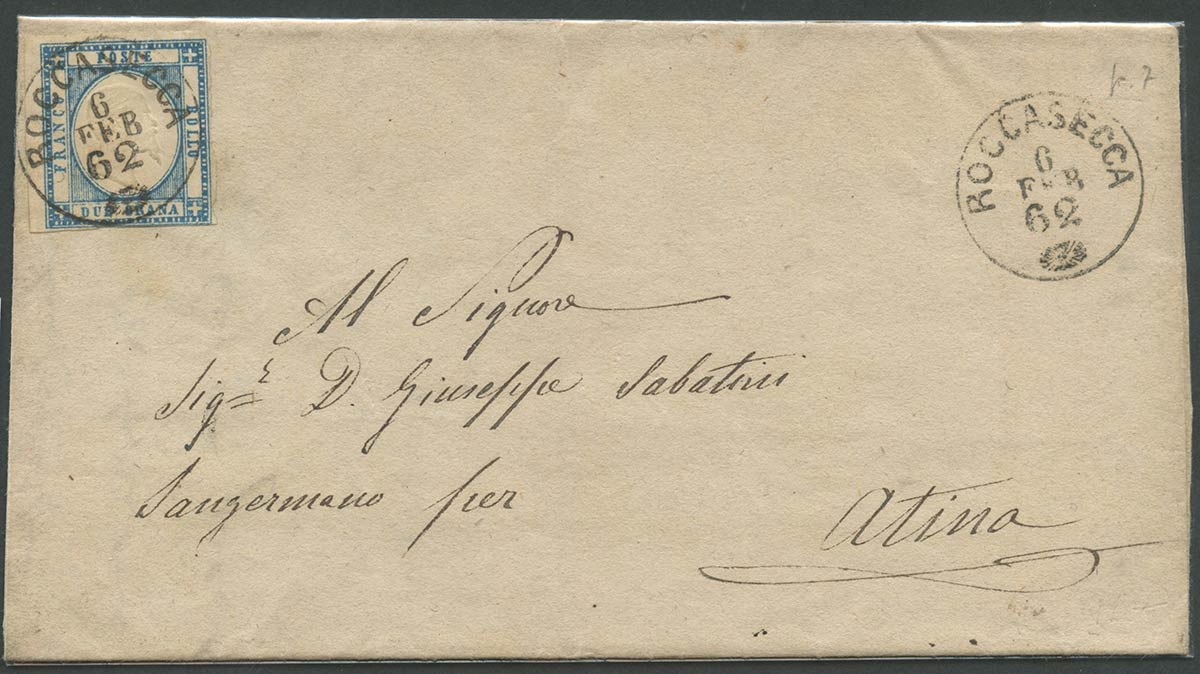 FRANCO
POSTE
BOLLO
DUE GRANA
ROCCASECCA
6
FEB
62
ROCCASECCA
6
FEB
62
Al Signore
Sig.r D. Giuseppe Sabatini
Sangermano per
Atina